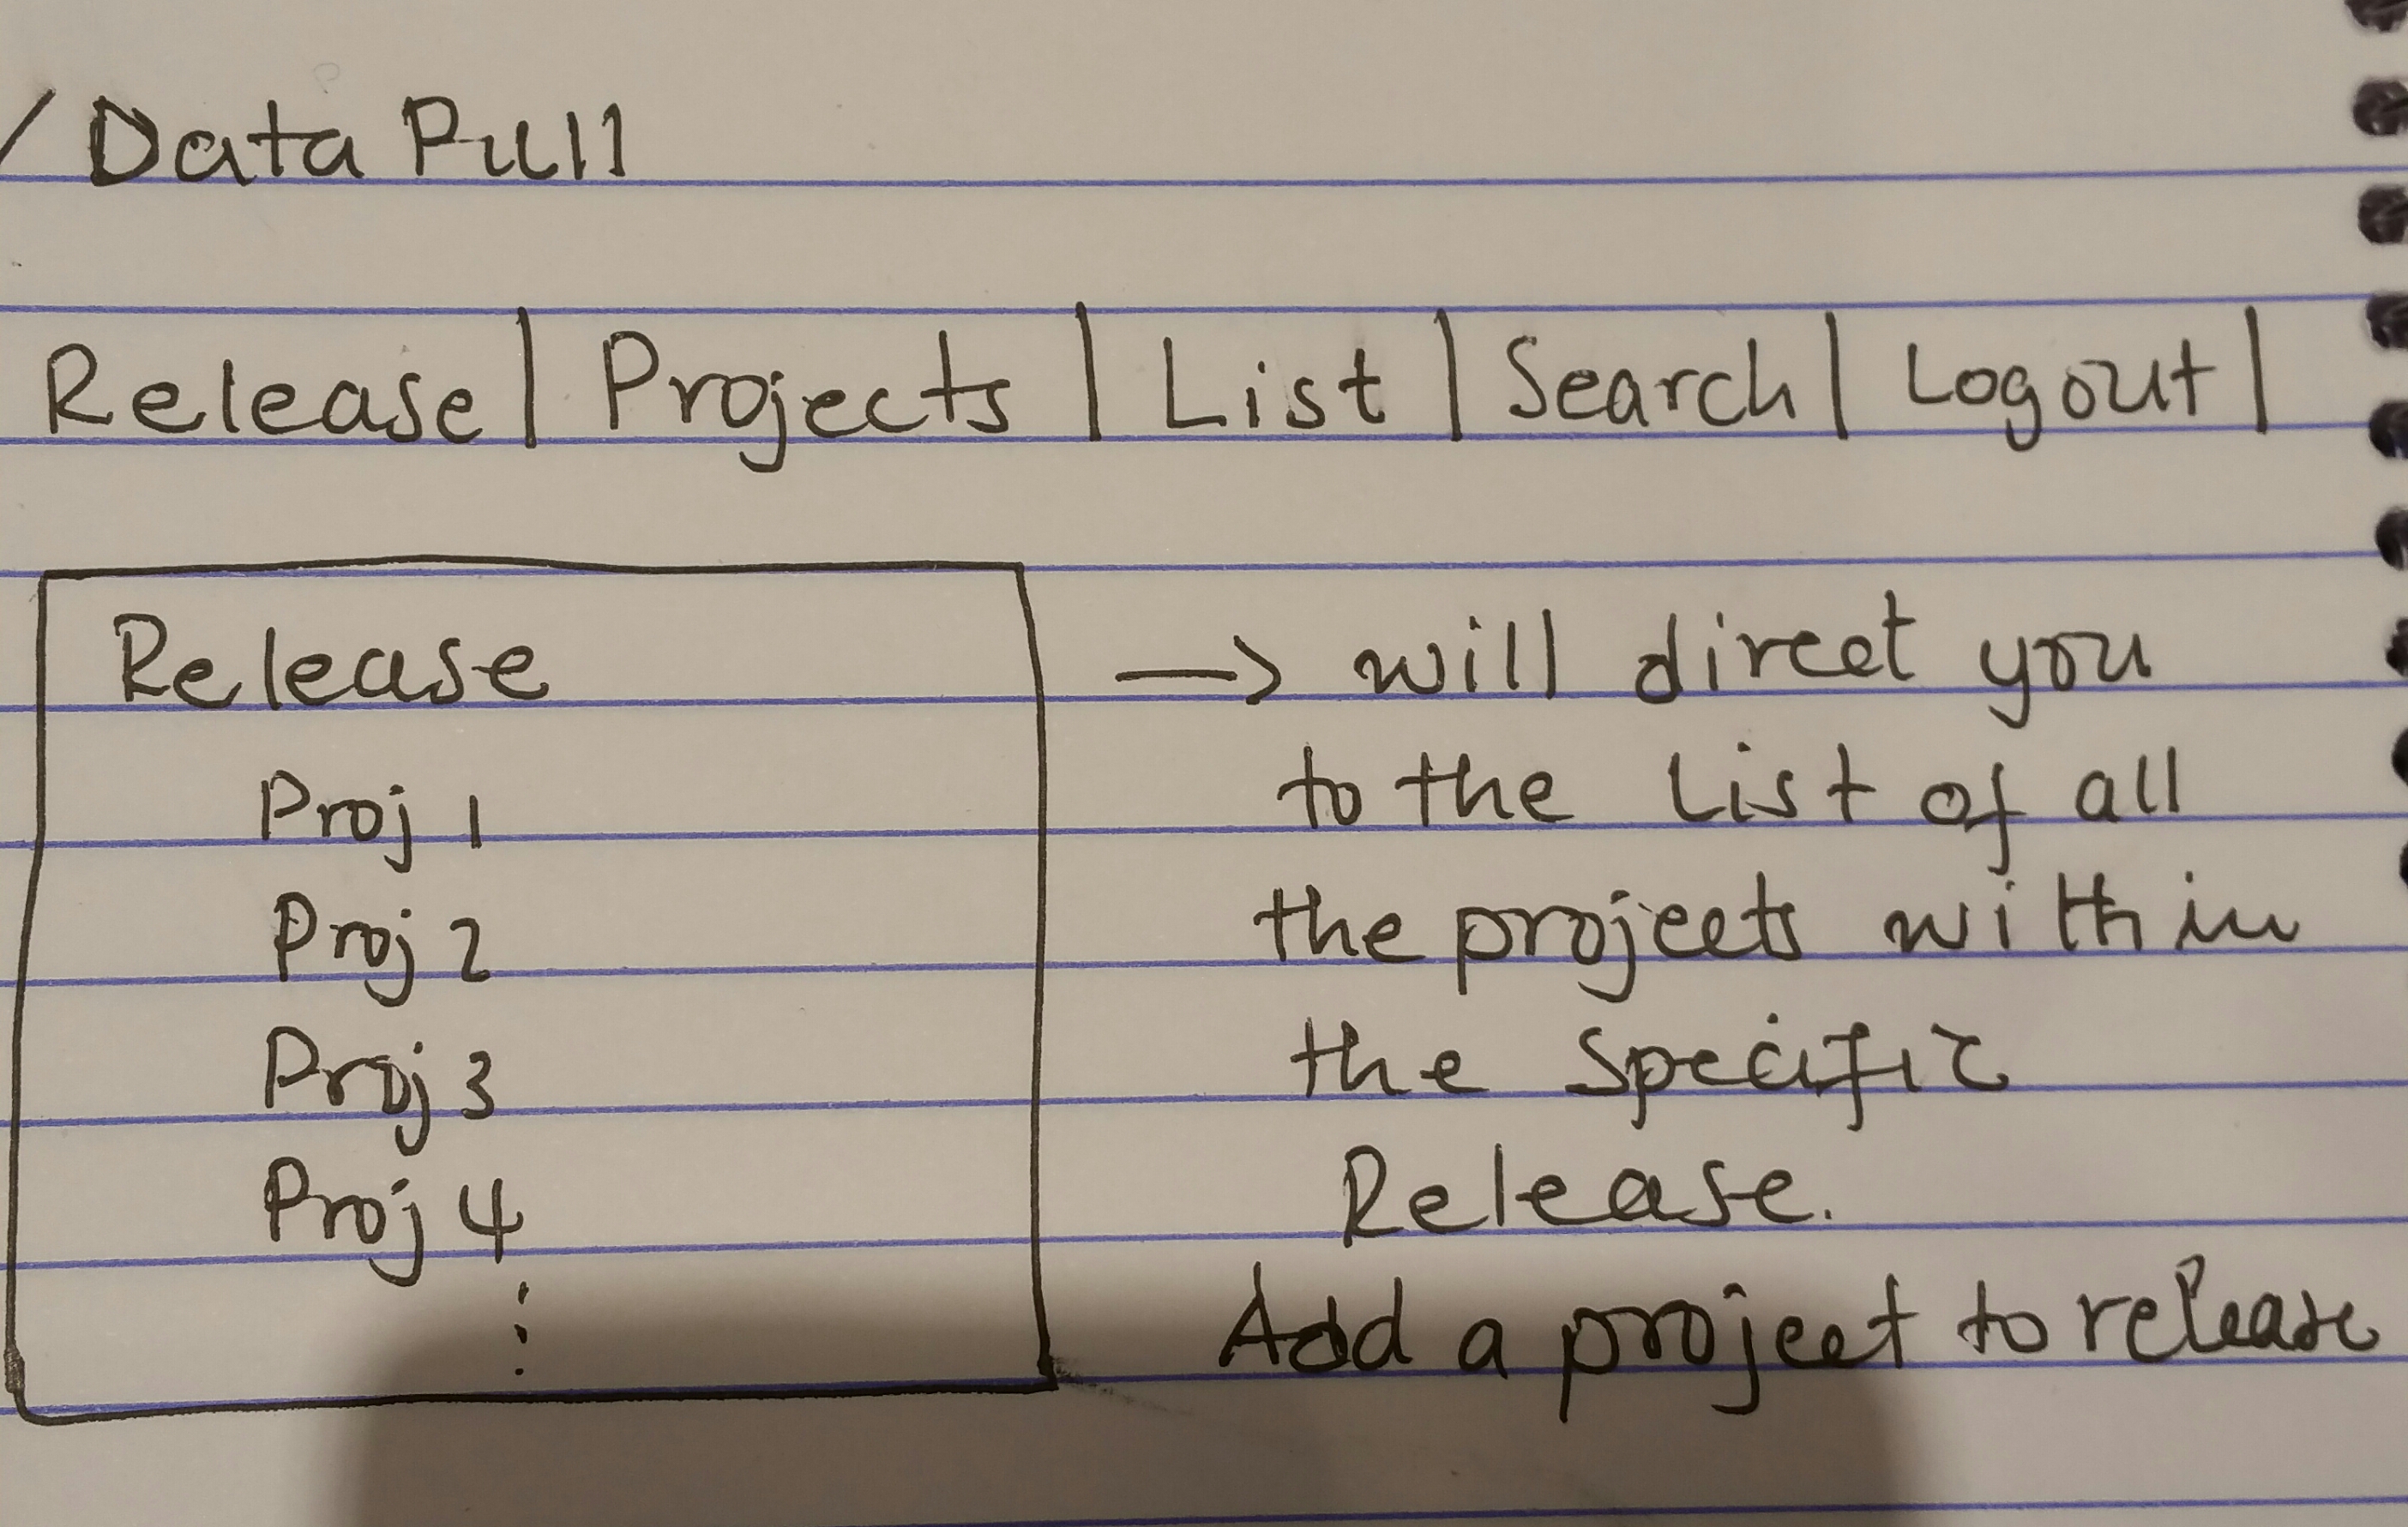 / Data Pull
Release | Projects | List | Search | Logout |
Release
Proj 1
Proj 2
Proj 3
Proj 4
⋮
→ will direct you
to the List of all
the projects within
the specific
Release.
Add a project to release